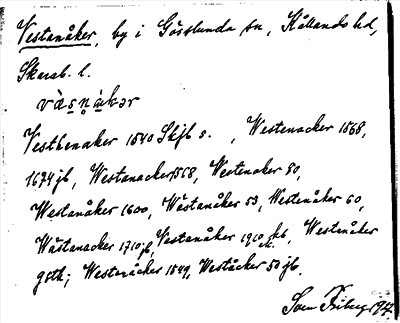 Vestanåker, by i Gösslunda sn, Kållands hd,
Skarab. l.
vàsn̥àkər
Vesthenaker 1540 Skjb s. , Westenacker 1568,
1674 jb, Westanacker 1568, Westenaker 80,
Westanåker 1600, Wästanåker 53, Westenåker 60,
Wästanacker 1710 jb, Vestanåker 1910 kb, Westenåker
gstk; Westeråcker 1549, Weståcker 50 jb.
Sven Friberg 1917.